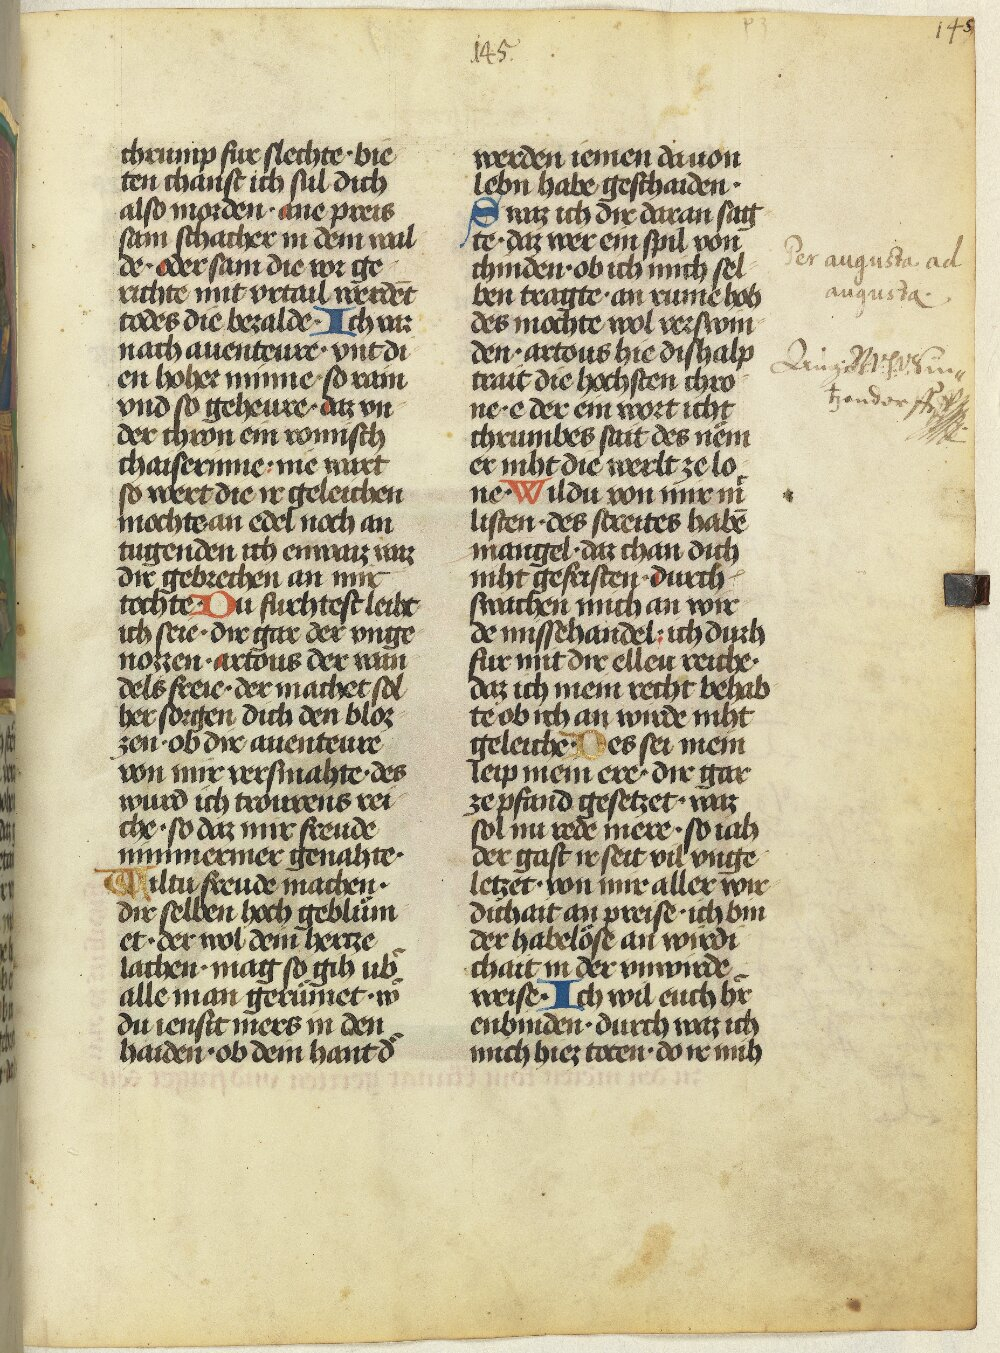 145
145
chrump fur slechte · bie
ten chanst ich sul dich
also morden · ane preis
sam schacher in dem wal
de · oder sam die vor ge
richte mit vrtail werdēt
todes die bezalde · Ich var
nach auenteure · vnt di
en hoher minne · so rain
vnd so geheure · daz vn
der thron ein romisch
chaiserinne : nie wart
so wert die ir geleichen
mochte an edel noch an
tugenden ich enwaiz waz
dir gebrechen an mir
tochte · Du furchtest leibt
ich seie · dir gar der vnge
nozzen · artous der wan
dels freie · der machet sol
her sorgen dich den bloz
zen · ob dir auenteure
von mir versmahte · des
wurd ich trourens rei
che · so daz mir freude
nimmermer genahte ·
Wiltu freude machen ·
dir selben hoch geblüm
et · der wol dein hertze
lachen · mag so gih ub̄
alle man gerümet · w̄
du iensit mers in den
haiden · ob dem hant d̄
werden iemen dauon
lebn habe geschaiden ·
Swaz ich dir daran sag
te · daz wer ein spil von
chinden · ob ich mich sel
ben tragte · an rume hoh
des mochte wol verswin
den · artous hie dishalp
trait die hochsten chro
ne · e der ein wort icht
chrumbes sait des nem
er niht die werlt ze lo
ne · Wildu von mir m̄
listen · des streites habē
mangel · daz chan dich
niht gefristen · durch
swachen mich an wir
de missehandel : ich durh
fur mit dir ellen reiche ·
daz ich mein recht behab
te ob ich an wirde niht
geleiche · Des sei mein
leip mein ere · dir gar
ze pfand gesetzet · waz
sol nu rede mere · so iah
der gast ir seit vil vnge
letzet · von mir aller wir
dichait an preise · ich bin
der habelöse an wirdi
chait in der vnwirde
weise · Ich wil euch hr̄
enbinden · durch waz ich
mich hiez toten · do ir mih
Per augusta ad
augusta.